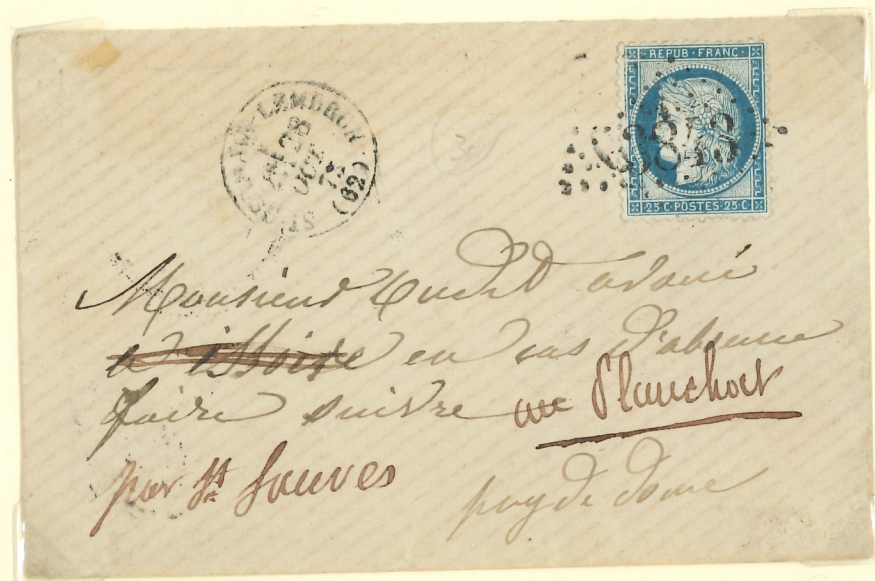 REPUB · FRANC ·
25 C · POSTES · 25 C
3843
ST GERMAIN-LEMBRON
28
OCT
73
(62)
30
Monsieur avoué
a issoire en cas d'absence
faire suivre au Planchat
par St Sauves
puy de dome